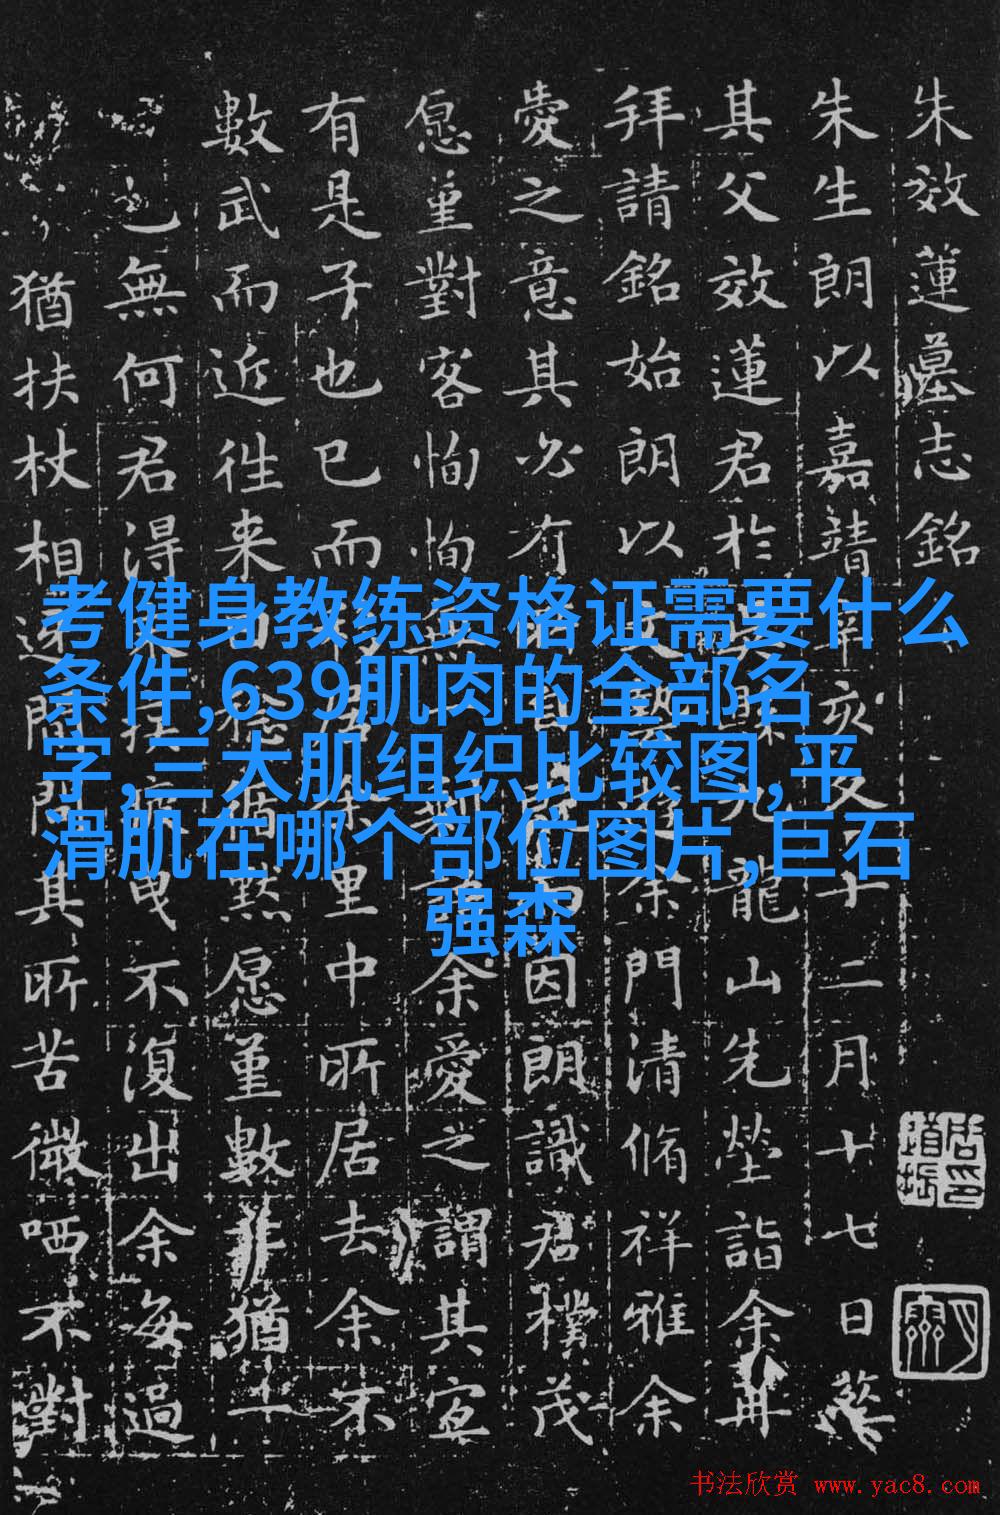 朱效蓮墓志銘
朱生朗以嘉靖辛亥十二月十七日葬
其父效蓮君於九龍山先塋詣余再
拜請銘始朗以余門清脩祥雅余
愛之意其必有自因朗識君樸茂
愿重對客恂恂無余愛之謂其宜
有是子也已而里中所居去余不
數武而近徃来默愿重數猶一
無何君得不復出余每過
猶扶杖相間問其所苦微哂不對
考健身教练资格证需要什么
条件,639肌肉的全部名
字,三大肌组织比较图,平
滑肌在哪个部位图片,巨石
强森
书法欣赏 www.yac8.com